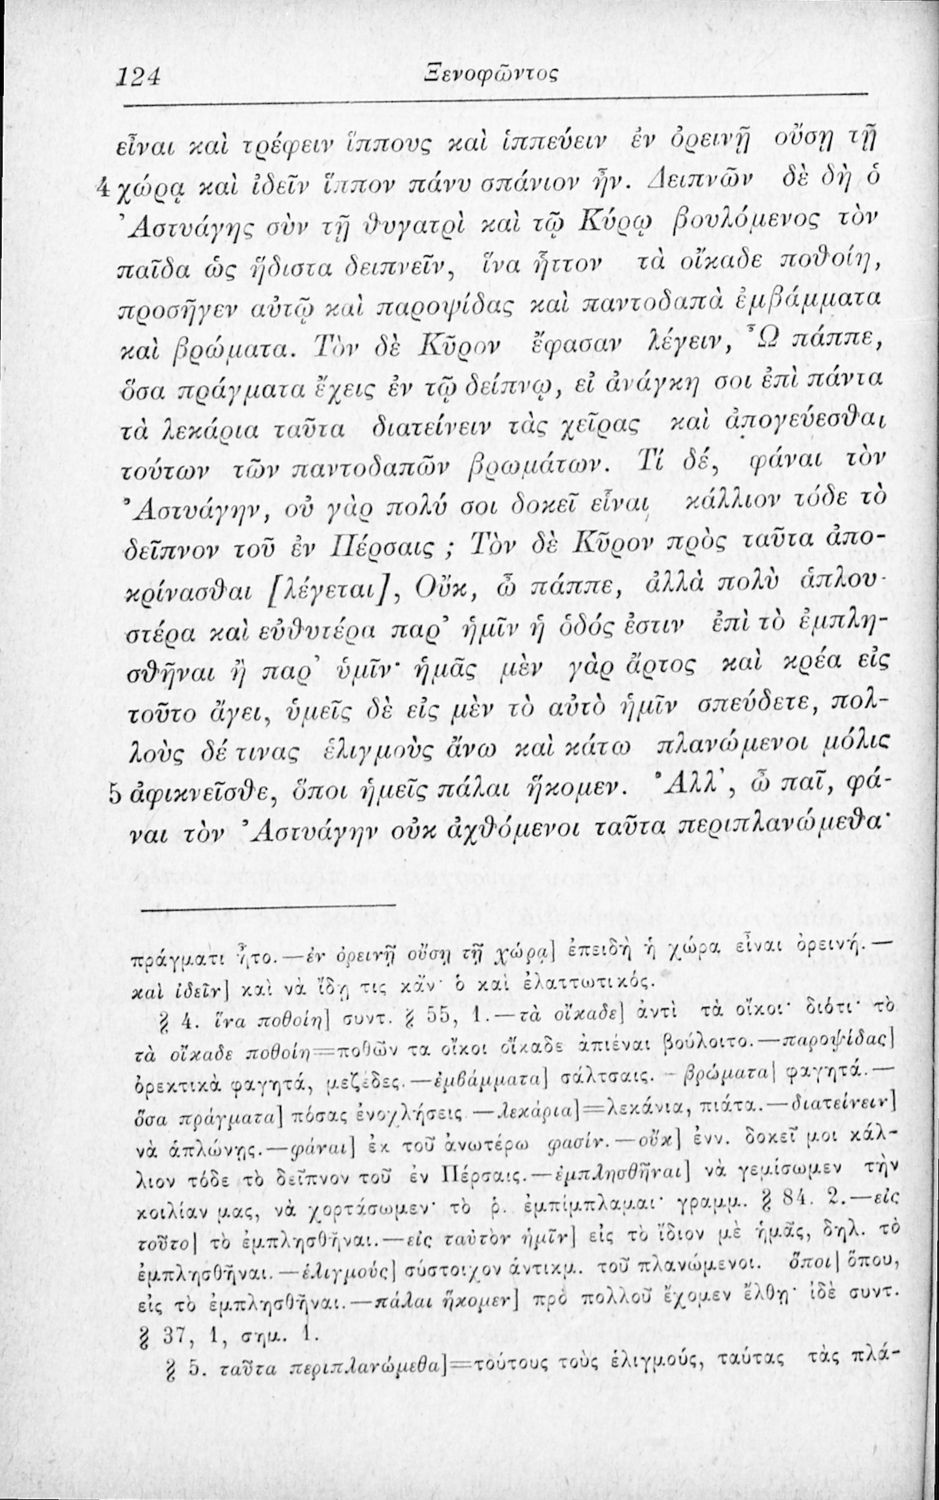 124 Ξενοφῶντος
εἶναι καὶ τρέφειν ἵππους καὶ ἱππεύειν ἐν ὀρεινῇ οὔσῃ τῇ
4 χώρᾳ καὶ ἰδεῖν ἵππον πάνυ σπάνιον ἦν. Δειπνῶν δὲ δὴ ὁ
Ἀστυάγης σὺν τῇ θυγατρὶ καὶ τῷ Κύρῳ βουλόμενος τὸν
παῖδα ὡς ἥδιστα δειπνεῖν, ἵνα ἧττον τὰ οἴκαδε ποθοίη,
προσῆγεν αὐτῷ καὶ παροψίδας καὶ παντοδαπὰ ἐμβάμματα
καὶ βρώματα. Τὸν δὲ Κῦρον ἔφασαν λέγειν, Ὦ πάππε,
ὅσα πράγματα ἔχεις ἐν τῷ δείπνῳ, εἰ ἀνάγκη σοι ἐπὶ πάντα
τὰ λεκάρια ταῦτα διατείνειν τὰς χεῖρας καὶ ἀπογεύεσθαι
τούτων τῶν παντοδαπῶν βρωμάτων. Τί δέ, φάναι τὸν
Ἀστυάγην, οὐ γὰρ πολύ σοι δοκεῖ εἶναι κάλλιον τόδε τὸ
δεῖπνον τοῦ ἐν Πέρσαις ; Τὸν δὲ Κῦρον πρὸς ταῦτα ἀπο-
κρίνασθαι [λέγεται], Οὔκ, ὦ πάππε, ἀλλὰ πολὺ ἁπλου-
στέρα καὶ εὐθυτέρα παρ’ ἡμῖν ἡ ὁδός ἐστιν ἐπὶ τὸ ἐμπλη-
σθῆναι ἢ παρ’ ὑμῖν· ἡμᾶς μὲν γὰρ ἄρτος καὶ κρέα εἰς
τοῦτο ἄγει, ὑμεῖς δὲ εἰς μὲν τὸ αὐτὸ ἡμῖν σπεύδετε, πολ-
λοὺς δέ τινας ἑλιγμοὺς ἄνω καὶ κάτω πλανώμενοι μόλις
5 ἀφικνεῖσθε, ὅποι ἡμεῖς πάλαι ἥκομεν. Ἀλλ’, ὦ παῖ, φά-
ναι τὸν Ἀστυάγην οὐκ ἀχθόμενοι ταῦτα περιπλανώμεθα·
πράγματι ἦτο.—ἐν ὀρεινῇ οὔσῃ τῇ χώρᾳ] ἐπειδὴ ἡ χώρα εἶναι ὀρεινή.—
καὶ ἰδεῖν] καὶ νὰ ἴδῃ τις κἄν· ὁ καὶ ἐλαττωτικός.
§ 4. ἵνα ποθοίη] συντ. § 55, 1.—τὰ οἴκαδε] ἀντὶ τὰ οἴκοι· διότι· τὸ
τὰ οἴκαδε ποθοίη=ποθῶν τα οἴκοι οἴκαδε ἀπιέναι βούλοιτο.—παροψίδας]
ὀρεκτικὰ φαγητά, μεζέδες.—ἐμβάμματα] σάλτσαις. - βρώματα] φαγητά.—
ὅσα πράγματα] πόσας ἐνοχλήσεις—λεκάρια]=λεκάνια, πιάτα.—διατείνειν]
νὰ ἁπλώνῃς.—φάναι] ἐκ τοῦ ἀνωτέρω φασίν.—οὔκ] ἐνν. δοκεῖ μοι κάλ-
λιον τόδε τὸ δεῖπνον τοῦ ἐν Πέρσαις.—ἐμπλησθῆναι] νὰ γεμίσωμεν τὴν
κοιλίαν μας, νὰ χορτάσωμεν· τὸ ῥ. ἐμπίμπλαμαι· γραμμ. § 84. 2.—εἰς
τοῦτο] τὸ ἐμπλησθῆναι.—εἰς ταὐτὸν ἡμῖν] εἰς τὸ ἴδιον μὲ ἡμᾶς, δηλ. τὸ
ἐμπλησθῆναι.—ἑλιγμούς] σύστοιχον ἀντικμ. τοῦ πλανώμενοι. ὅποι] ὅπου,
εἰς τὸ ἐμπλησθῆναι.—πάλαι ἥκομεν] πρὸ πολλοῦ ἔχομεν ἔλθῃ· ἰδὲ συντ.
§ 37, 1, σημ. 1.
§ 5. ταῦτα περιπλανώμεθα]=τούτους τοὺς ἑλιγμούς, ταύτας τὰς πλά-